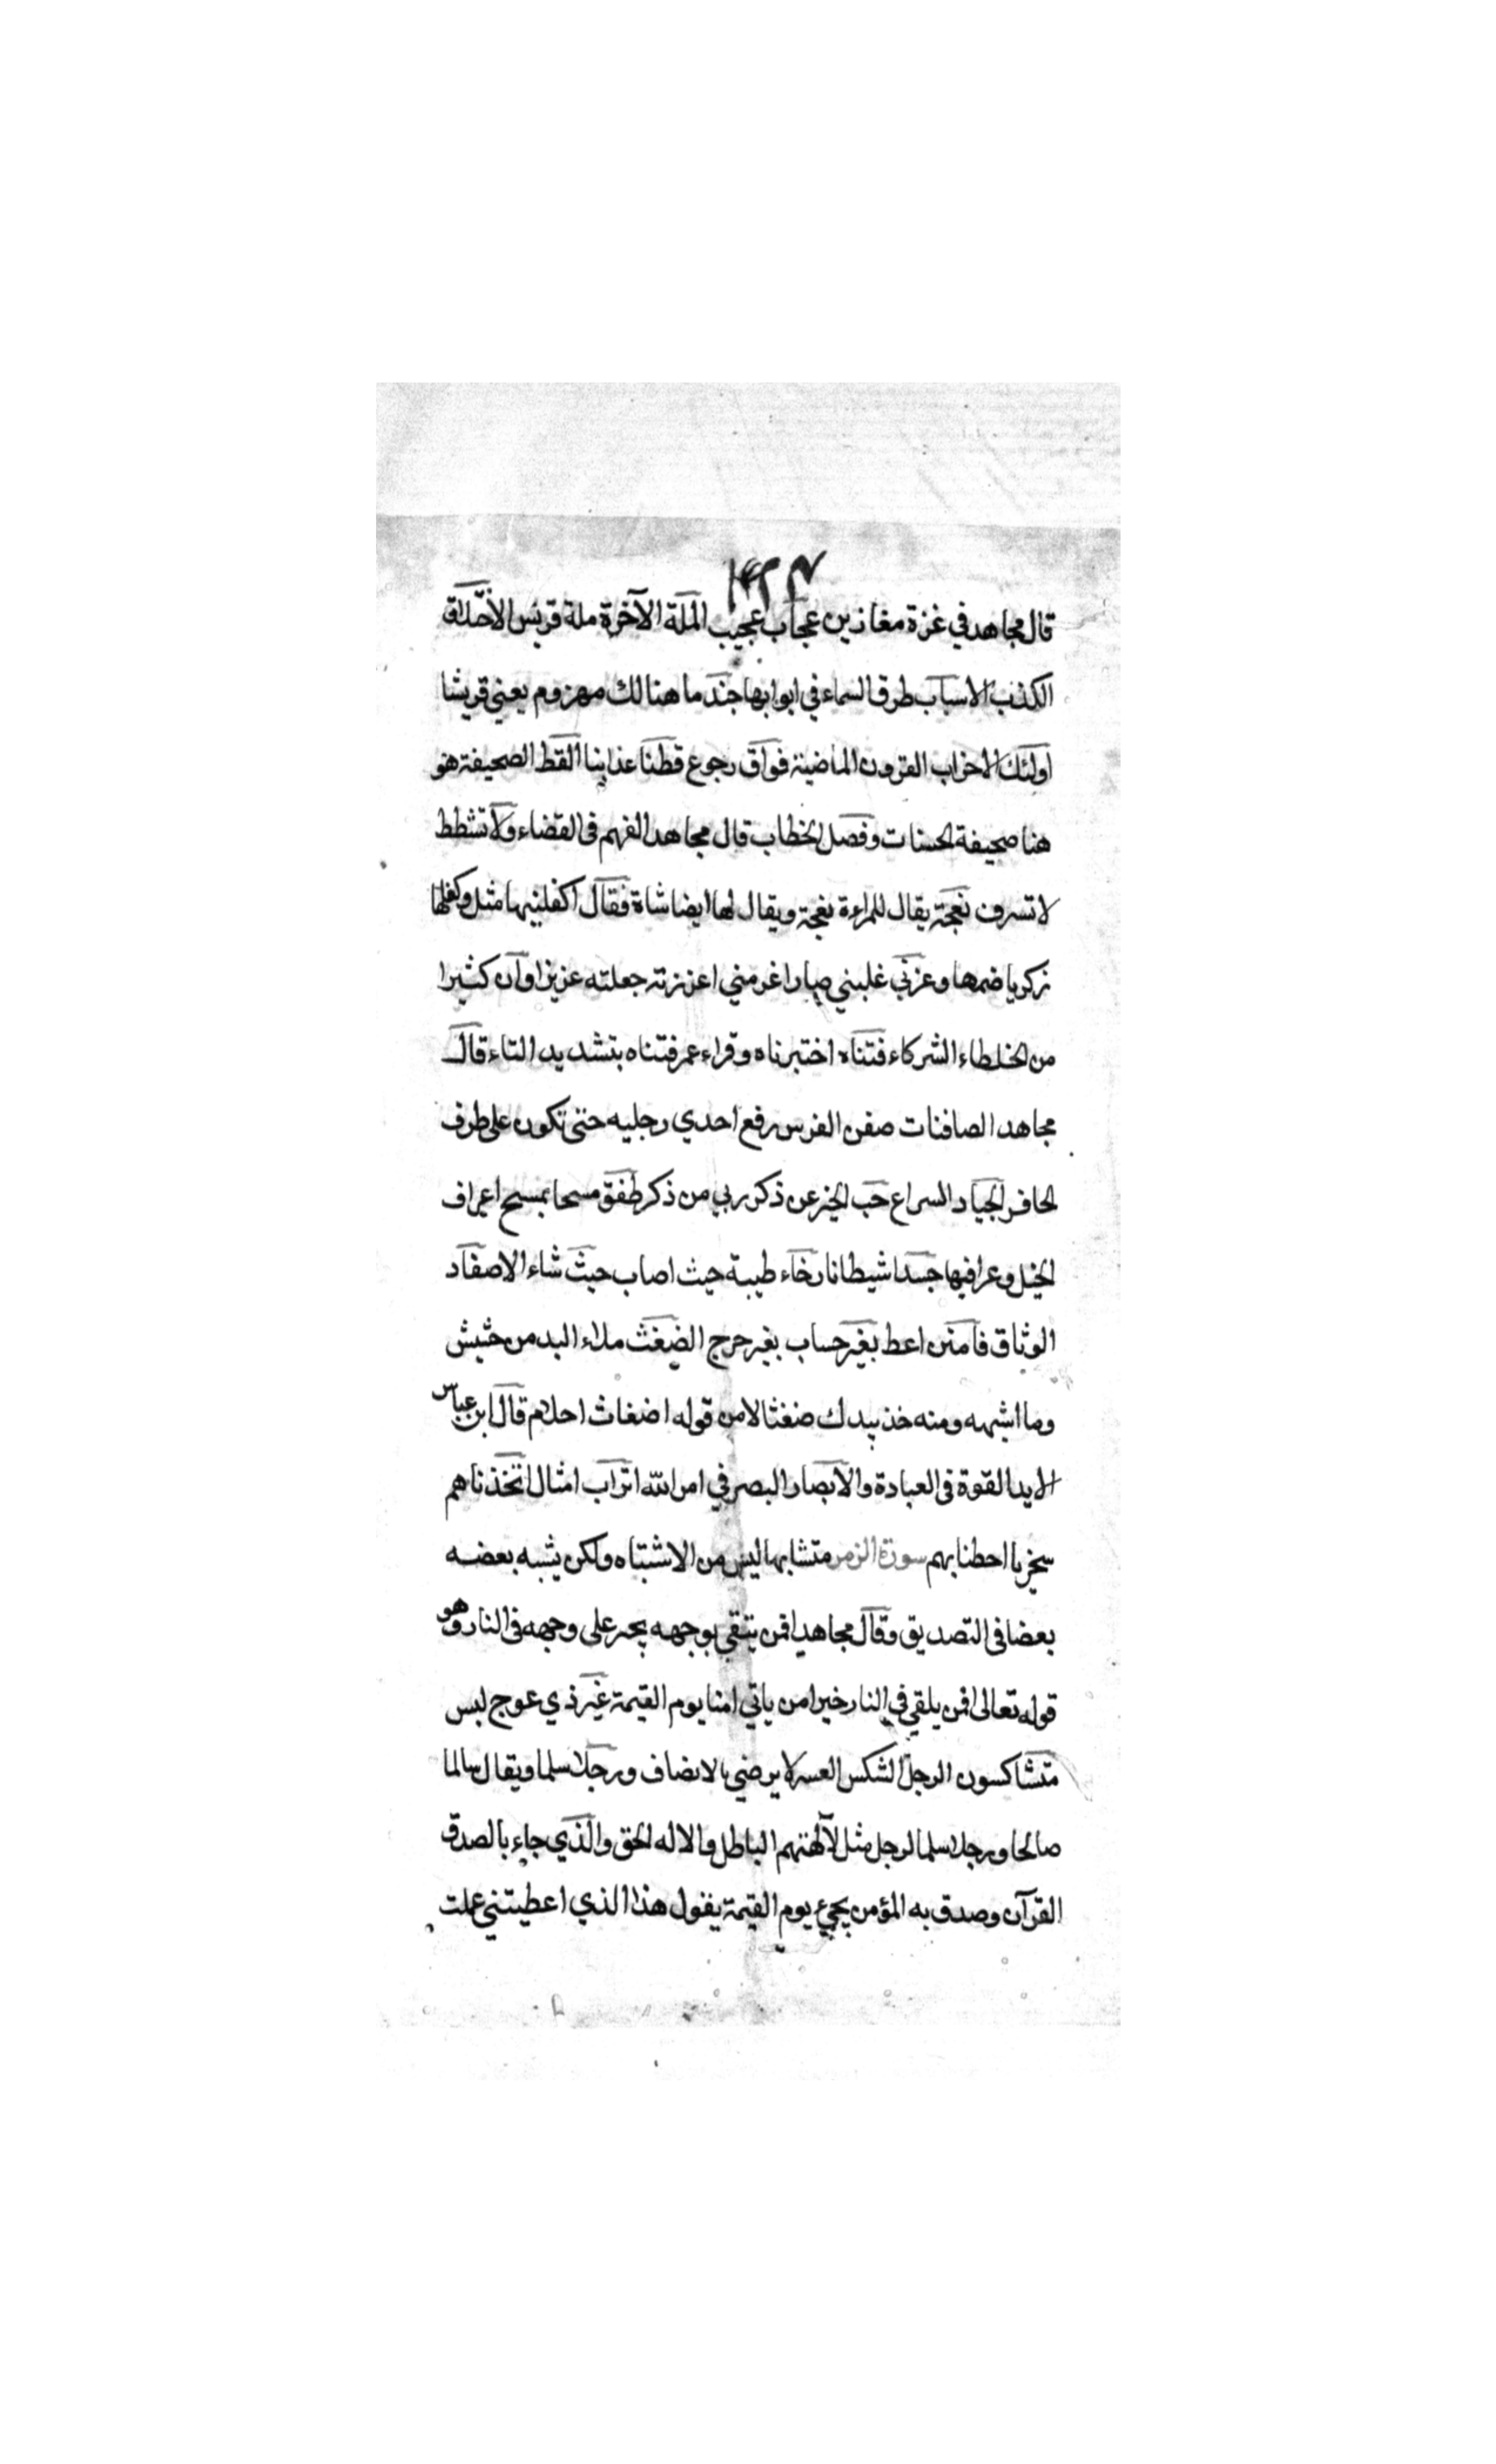 قال مجاهد في غزة مغازين عجاب عجيب الملة الآخرة ملة قريش الاختلاق
الكذب الاسباب طرق السماء في ابوابها جند ما هنالك مهزوم يعني قريشا
اولئك الاحزاب القرون الماضية فواق رجوع قطنا عذابنا القط الصحيفة هو
هنا صحيفة الحسنات وفصل الخطاب قال مجاهد الفهم فى القضاء ولا تشطط
لا تسرف نعجة يقال للمراءة نعجة ويقال لها ايضا شاة فقال اكفلنيها مثل وكفلها
زكريا ضمها وعزني غلبني صار اغر مني اعززته جعلته عزيزا وان كثيرا
من الخلطاء الشركاء فتناه اختبرناه وقراء عمر فتناه بتشديد التاء قال
مجاهد الصافنات صفن الفرس رفع احدي رجليه حتى تكون على طرف
الحافر الجياد السراع حب الخير عن ذكر ربي من ذكر طفق مسحا يمسح اعراف
الخيل وعراقيبها جسدا شيطانا رخاء طيبة حيث اصاب حيث شاء الاصفاد
الوثاق فامنن اعط بغير حساب بغير حرج الضغث ملاء اليد من حشيش
وما اشبهه ومنه خذ بيدك ضغثا لا من قوله اضغاث احلام قال ابن عباس
الايد القوة فى العبادة والابصار البصر في امر الله اتراب امثال اتخذناهم
سخريا احطنا بهم سورة الزمر متشابها ليس من الاشتباه ولكن يشبه بعضه
بعضا فى التصديق وقال مجاهد افمن يتقي بوجهه يجر على وجهه فى النار وهو
قوله تعالى افمن يلقي في النار خير امن ياتي امنا يوم القيمة غير ذي عوج لبس
متشاكسون الرجل الشكس العسر لا يرضي بالانصاف ورجلا سلما ويقال سالما
صالحا ورجلا سلما لرجل مثل لآلهتهم الباطل والاله الحق والذي جاء بالصدق
القرآن وصدق به المؤمن يجيء يوم القيمة يقول هذا الذي اعطيتني عملت